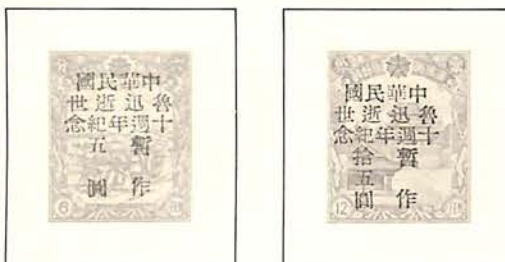 中華民國
魯迅逝世
十週年紀念
暫作
五圓
6
中華民國
魯迅逝世
十週年紀念
暫作
拾五圓
12